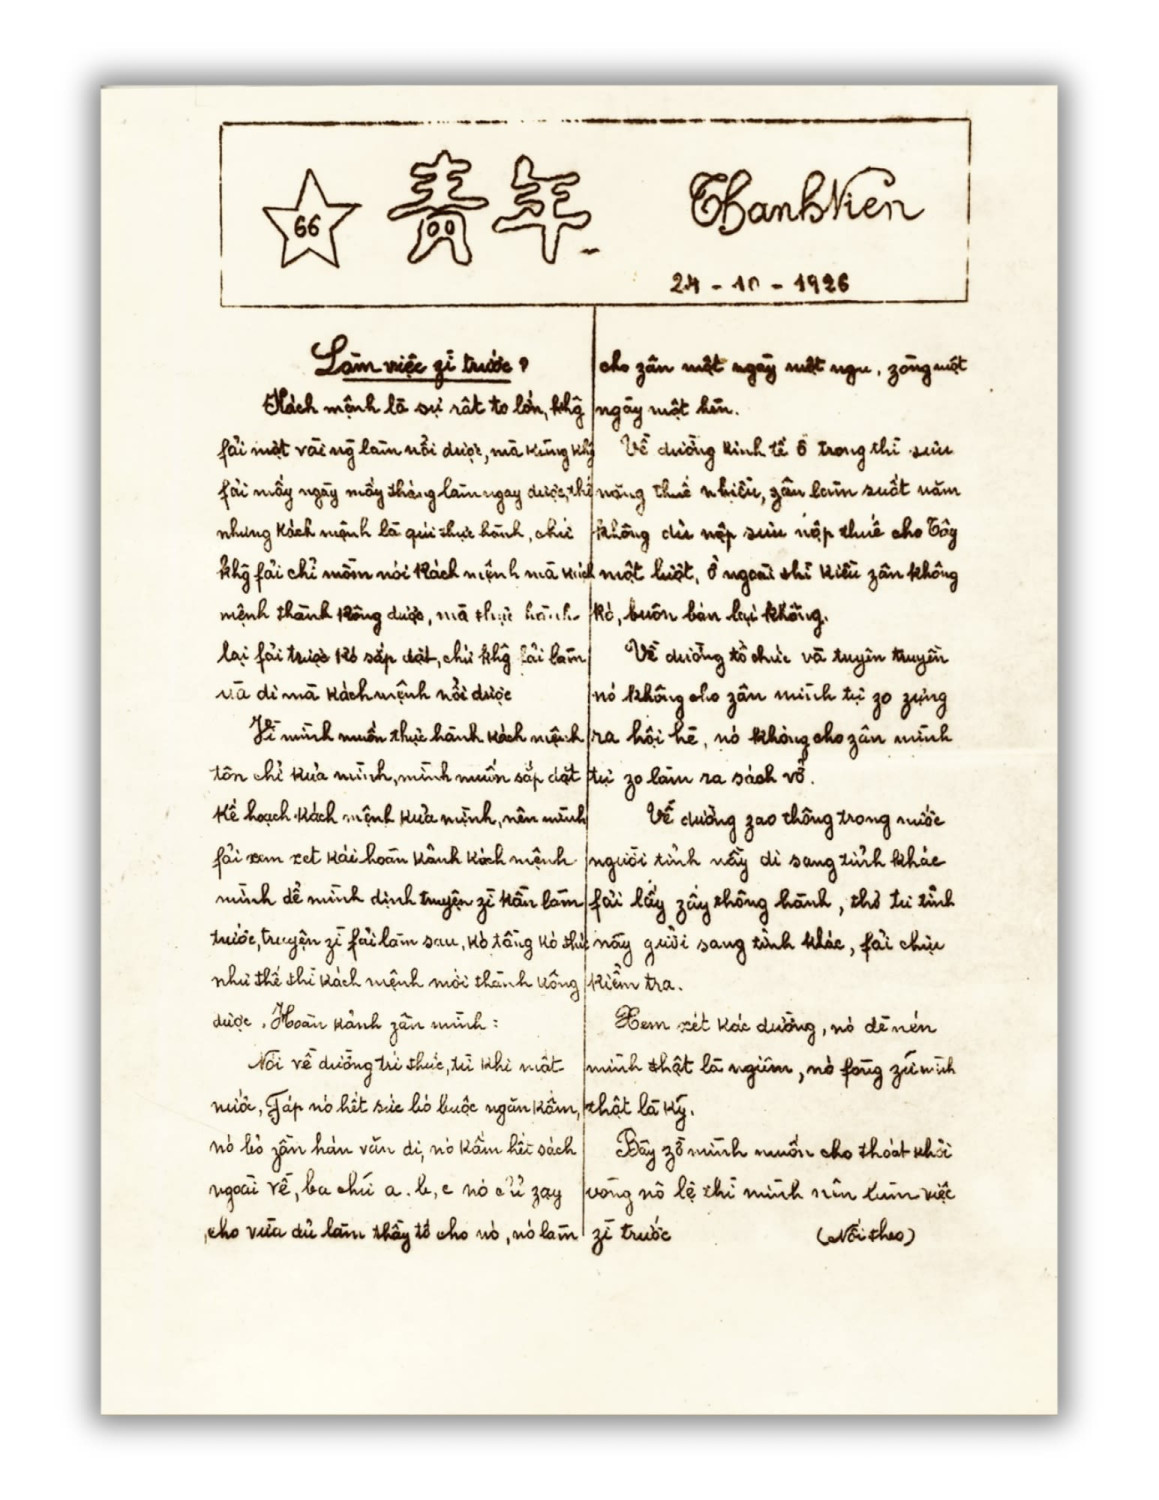 66
青年
Thanh Niên
24 - 10 - 1926
Làm việc zì trước?
Kách mệnh là sự rất to lớn, khg̃
fải một vài ng̃ làm nổi dược, mà kũng khg̃
fải mấy ngày mấy tháng làm ngay dược, thế
nhưng kách mệnh là quí thực hành, chứ
khg̃ fải chỉ mồm nói kách mệnh mà kách
mệnh thành kông dược, mà thực hành
lại fải trước kó sắp dặt, chứ khg̃ fải làm
và di mà kách mệnh nổi dược
Vì mình muốn thực hành kách mệnh
tôn chỉ kủa mình, mình muốn sắp dặt
kế hoạch kách mệnh kủa mình, nên mình
fải xem xét kái hoàn kảnh kách mệnh
mình dể mình dịnh truyện zì kần làm
trước, truyện zì fải làm sau, kó tầng kó thứ
như thế thì kách mệnh mới thành kông
dược. Hoàn kảnh zân mình:
Nói về dường trí thức, từ khi mất
nước, Fáp nó hết sức bó buộc ngăn kấm,
nó bỏ zân hán văn di, nó kấm hết sách
ngoài về, ba chữ a, b, c nó chỉ zạy
cho vừa dủ làm thầy tớ cho nó, nó làm
cho zân một ngày một ngu, zòng một
ngày một hèn.
Về dường kinh tế ở trong thì sưu
nặng thuế nhiều, zân làm suốt năm
không dủ nộp sưu nộp thuế cho Tây
một lượt, ở ngoài thì kiều zân không
kó, buôn bán lại không.
Về dường tổ chức và tuyên truyền
nó không cho zân mình tự zo zựng
ra hội hè, nó không cho zân mình
tự zo làm ra sách vở.
Về dường zao thông trong nước
người tỉnh nầy di sang tỉnh khác
fải lấy zấy thông hành, thơ từ tỉnh
nầy gưỉi sang tỉnh khác, fải chịu
kiểm tra.
Xem xét kác dường, nó dè nén
mình thật là ngiêm, nó fòng zữ mình
thật là kỹ.
Bây zờ mình muốn cho thoát khỏi
vòng nô lệ thì mình nên làm việc
zì trước
(Nối theo)